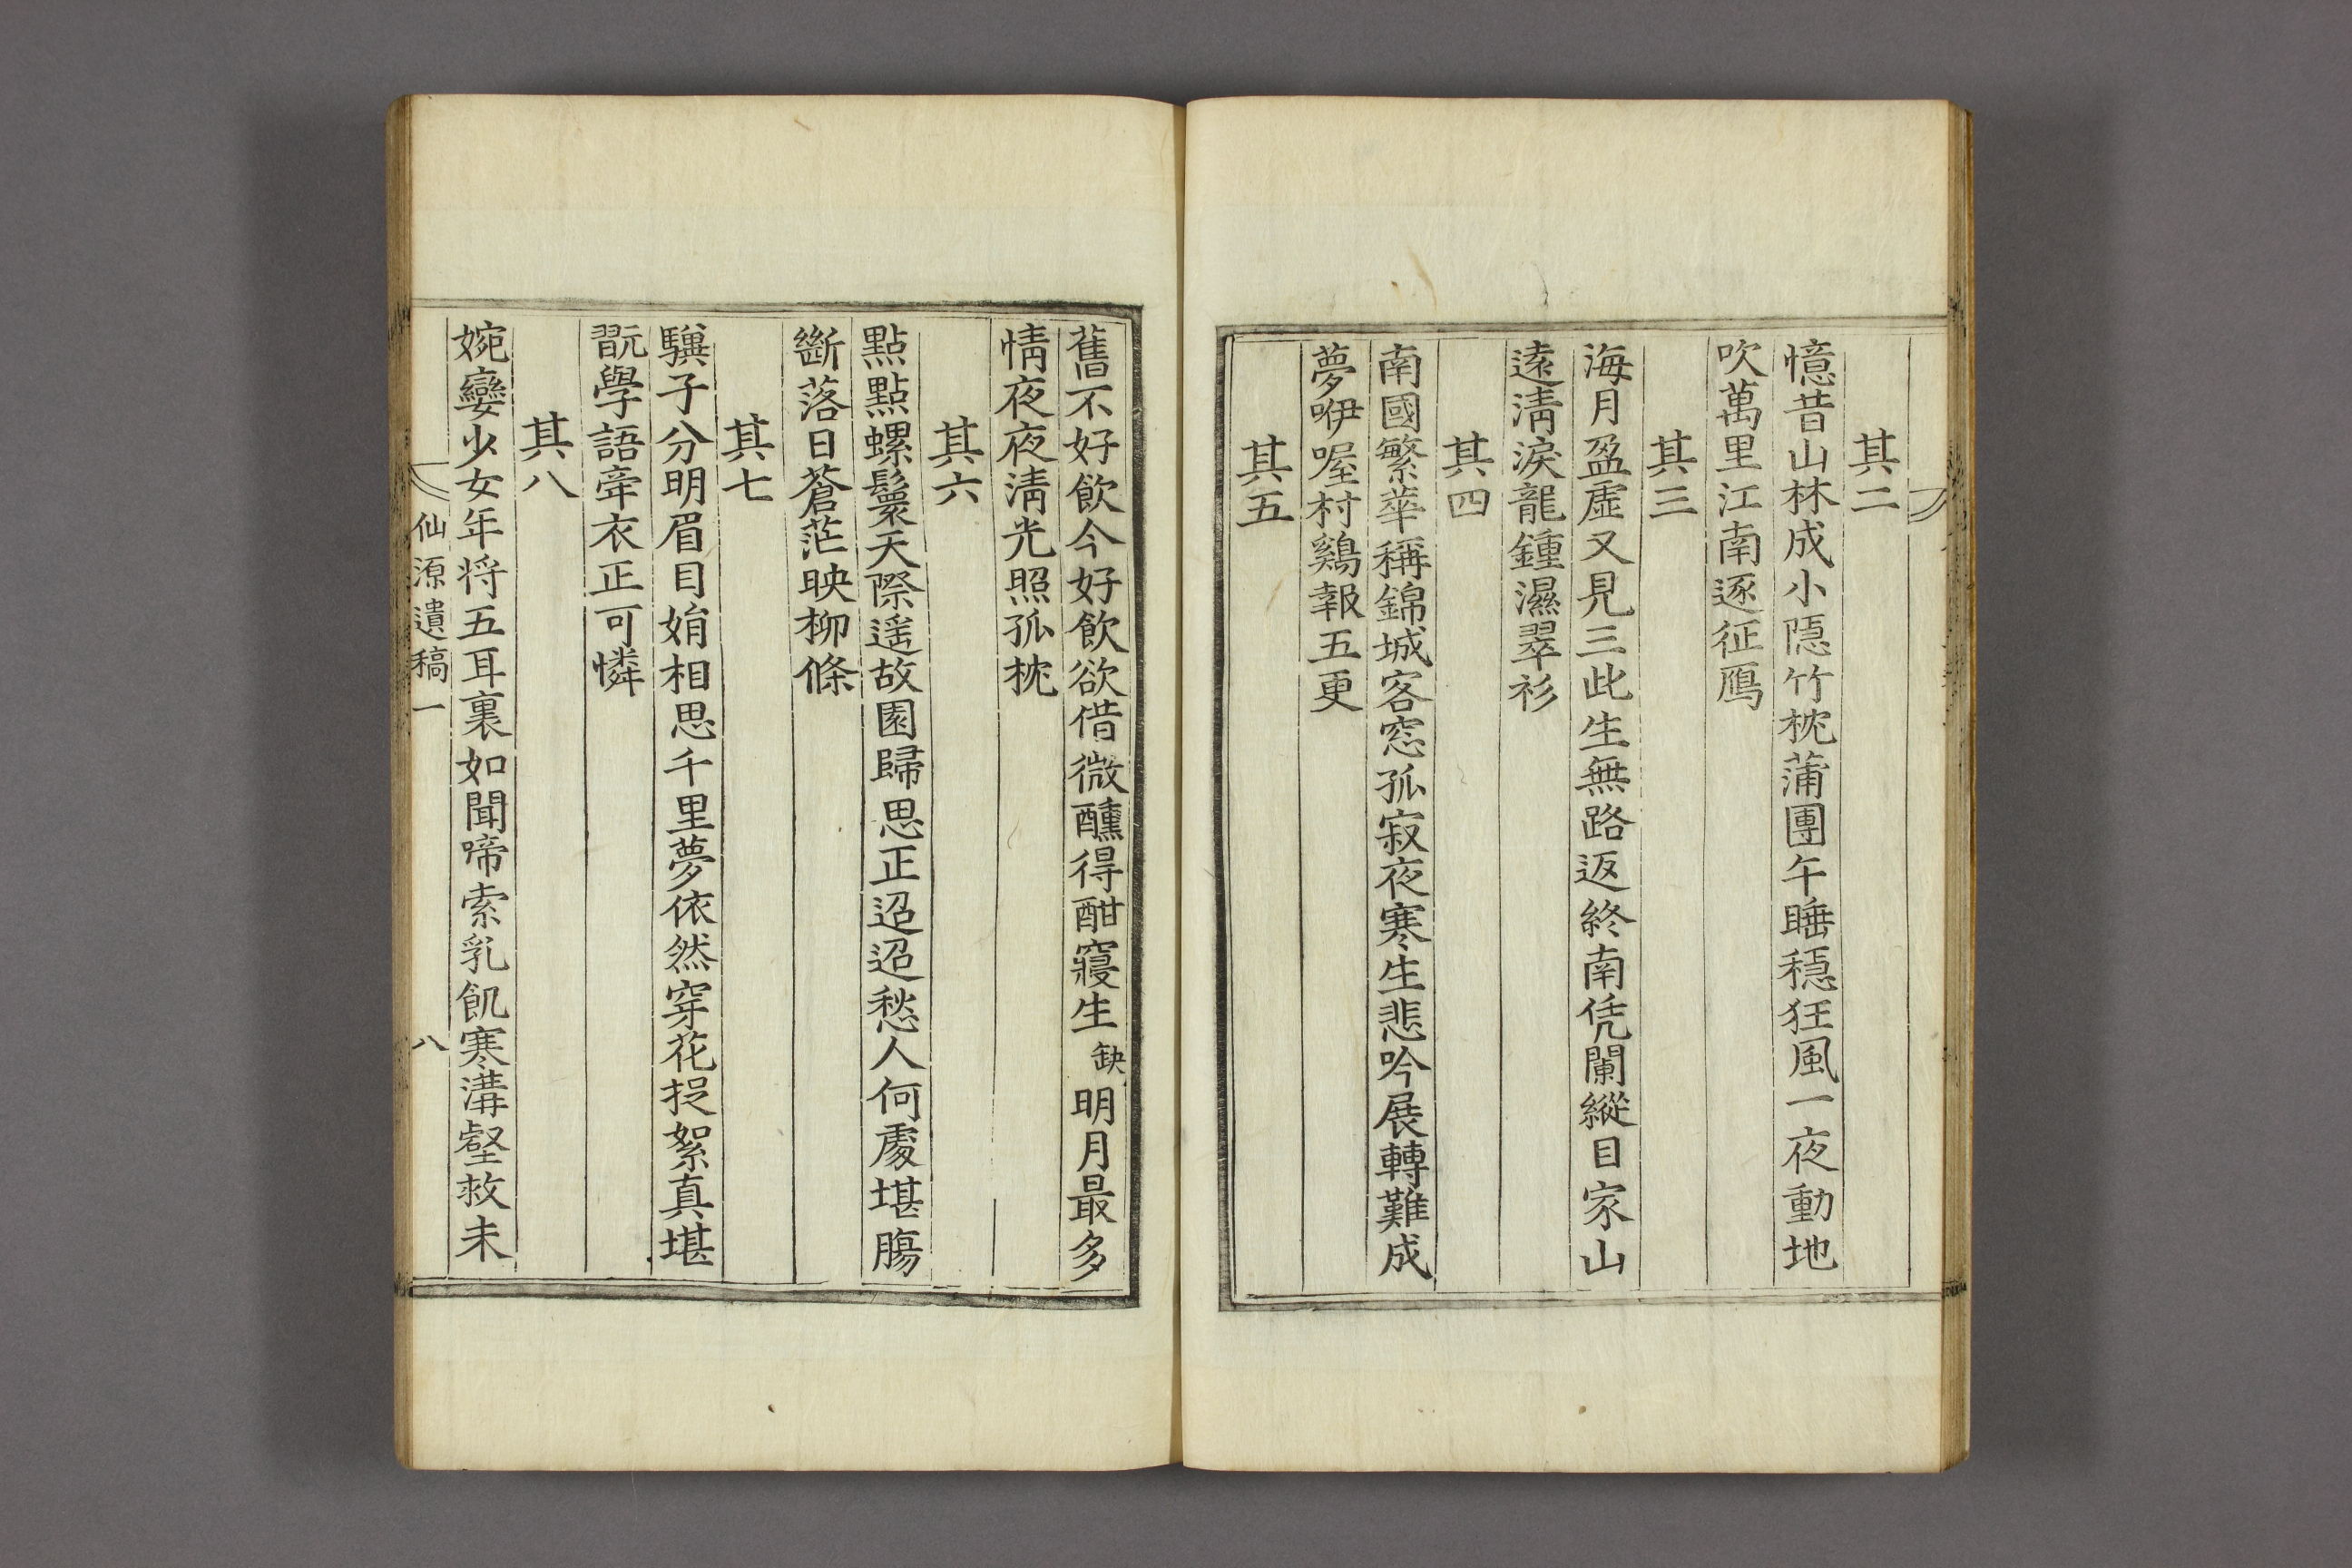 其二
憶昔山林成小隱竹枕蒲團午睡穩狂風一夜動地
吹萬里江南逐征鴈
其三
海月盈虛又見三此生無路返終南凭闌縱目家山
遠淸淚龍鍾濕翠衫
其四
南國繁華稱錦城客窓孤寂夜寒生悲吟展轉難成
夢咿喔村鷄報五更
其五
舊不好飮今好飮欲借微醺得酣寢生缺明月最多
情夜夜淸光照孤枕
其六
點點螺鬟天際遥故園歸思正迢迢愁人何處堪膓
斷落日蒼茫映柳條
其七
驥子分明眉目娟相思千里夢依然穿花捉絮真堪
翫學語牽衣正可憐
其八
婉孌少女年将五耳裏如聞啼索乳飢寒溝壑救未
仙源遺稿一
八